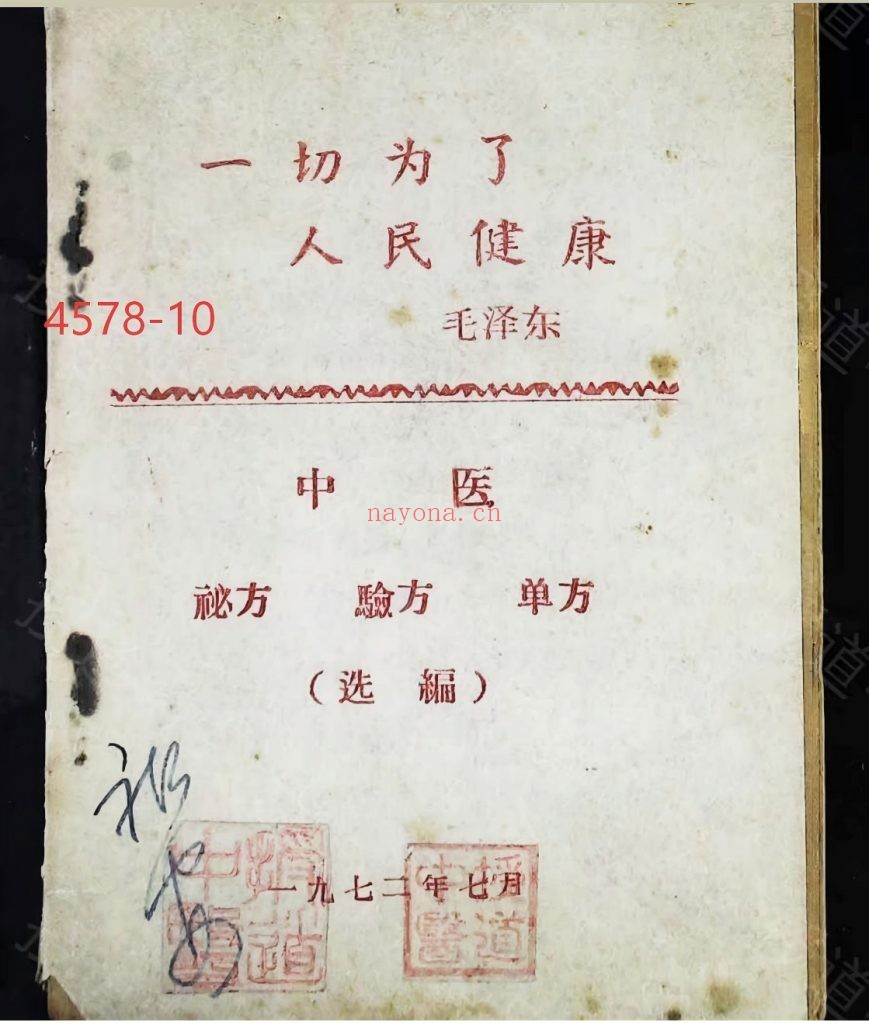 一切为了
人民健康
4578-10
毛泽东
中医
nayona.cn
祕方 驗方 单方
（选編）
一九七二年七月